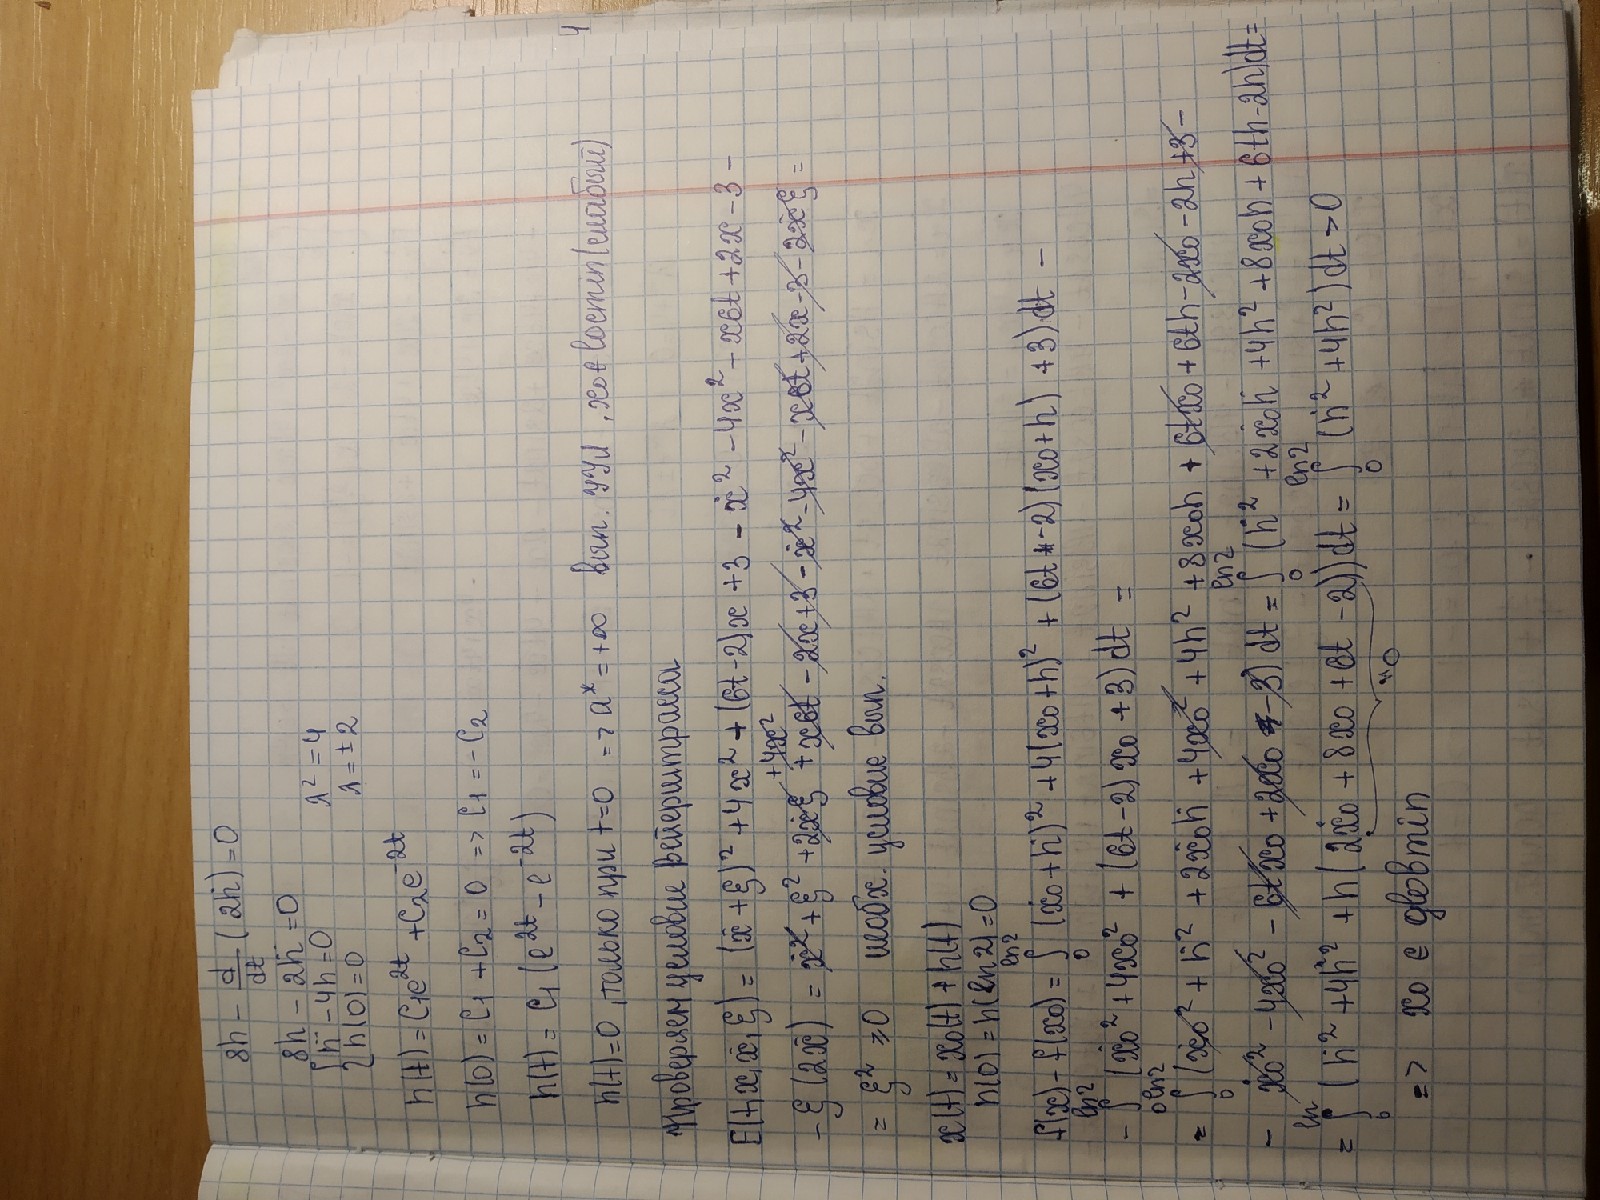 8h − d/dt (2ḣ) = 0
8h − 2ḧ = 0
{ ḧ − 4h = 0 λ² = 4
{ h(0) = 0 λ = ±2
h(t) = C₁e^{2t} + C₂e^{−2t}
h(0) = C₁ + C₂ = 0 => C₁ = −C₂
h(t) = C₁(e^{2t} − e^{−2t})
h(t)=0, только при t=0 => a* = +∞ вып. УУЛ, x₀ ∈ locmin (слабый)
Проверяем условие Вейерштрасса
E(t, x, ẋ, ξ) = (ẋ + ξ)² + 4x² + (6t−2)x + 3 − ẋ² − 4x² − x6t + 2x − 3 −
+4x²
− ξ(2ẋ) = ẋ² + ξ² + 2ẋξ + x6t − 2x + 3 − ẋ² − 4x² − x6t + 2x − 3 − 2ẋξ =
= ξ² ≥ 0 необх. условие вып.
x(t) = x₀(t) + h(t)
h(0) = h(ln2) = 0
f(x) − f(x₀) = ∫₀^{ln2} (ẋ₀ + ḣ)² + 4(x₀ + h)² + (6t − 2)(x₀ + h) + 3) dt −
− ∫₀^{ln2} (ẋ₀² + 4x₀² + (6t − 2)x₀ + 3) dt =
= ∫₀^{ln2} (ẋ₀² + ḣ² + 2ẋ₀ḣ + 4x₀² + 4h² + 8x₀h + 6tx₀ + 6th − 2x₀ − 2h + 3 −
− ẋ₀² − 4x₀² − 6tx₀ + 2x₀ − 3) dt = ∫₀^{ln2} (ḣ² + 2ẋ₀ḣ + 4h² + 8x₀h + 6th − 2h) dt =
= ∫₀^{ln} (ḣ² + 4h² + h(2ẋ₀ + 8x₀ + 6t − 2)) dt = ∫₀^{ln2} (ḣ² + 4h²) dt > 0
"0
=> x₀ ∈ globmin